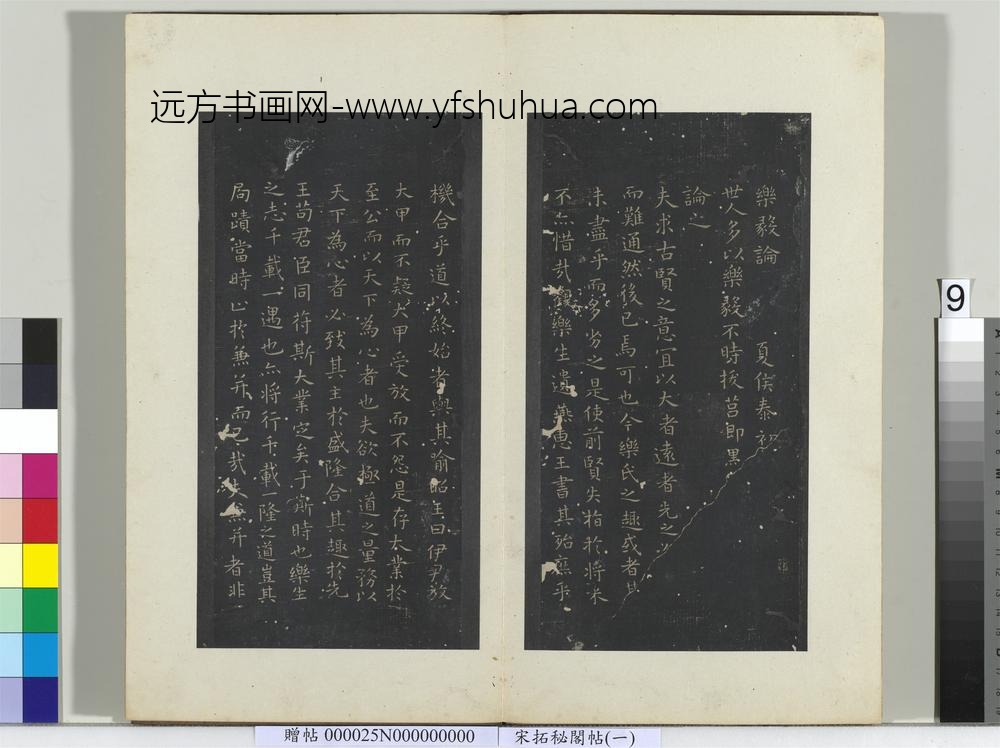 远方书画网-www.yfshuhua.com
樂毅論 夏侯泰初
世人多以樂毅不時拔莒即墨
論之
夫求古賢之意宜以大者遠者先之必
而難通然後已焉可也今樂氏之趣或者其
未盡乎而多劣之是使前賢失指於將來
不亦惜哉觀樂生遺燕惠王書其殆庶乎
機合乎道以終始者與其喻昭王曰伊尹放
大甲而不疑大甲受放而不怨是存大業於
至公而以天下為心者也夫欲極道之量務以
天下為心者必致其主於盛隆合其趣於先
王苟君臣同符斯大業定矣于斯時也樂生
之志千載一遇也亦將行千載一隆之道豈其
局蹟當時止於兼并而已哉夫兼并者非
9
贈帖 000025N000000000 宋拓秘閣帖(一)